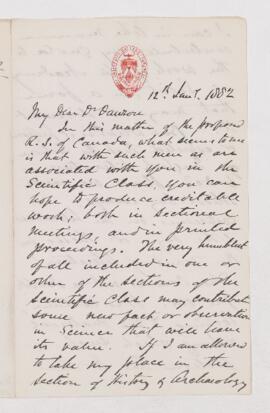 12th Jany. 1882
My Dear Dr Dawson
In this matter of the proposed
R.S. of Canada, what seems to me
is that with such men as are
associated with you in the
Scientific Class, you can
hope to produce creditable
work; both in sectional
meetings, and in printed
proceedings. The very humblest
of all included in one or
other of the sections of the
Scientific Class may contribute
some new fact or observation
in Science that will have
its value. If I am allowed
to take my place in the
section of History & Archaeology